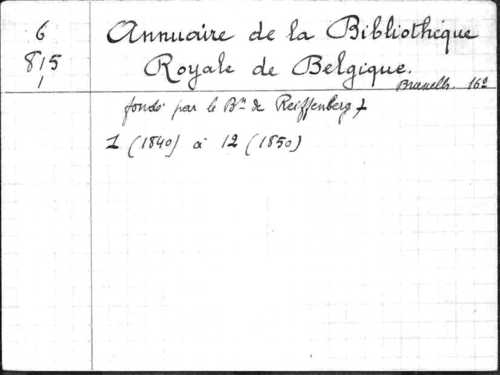 6
815
1
Annuaire de la Bibliothèque
Royale de Belgique.
Bruxelles. 16º
fondé par le Bon de Reiffenberg
1 (1840) à 12 (1850)